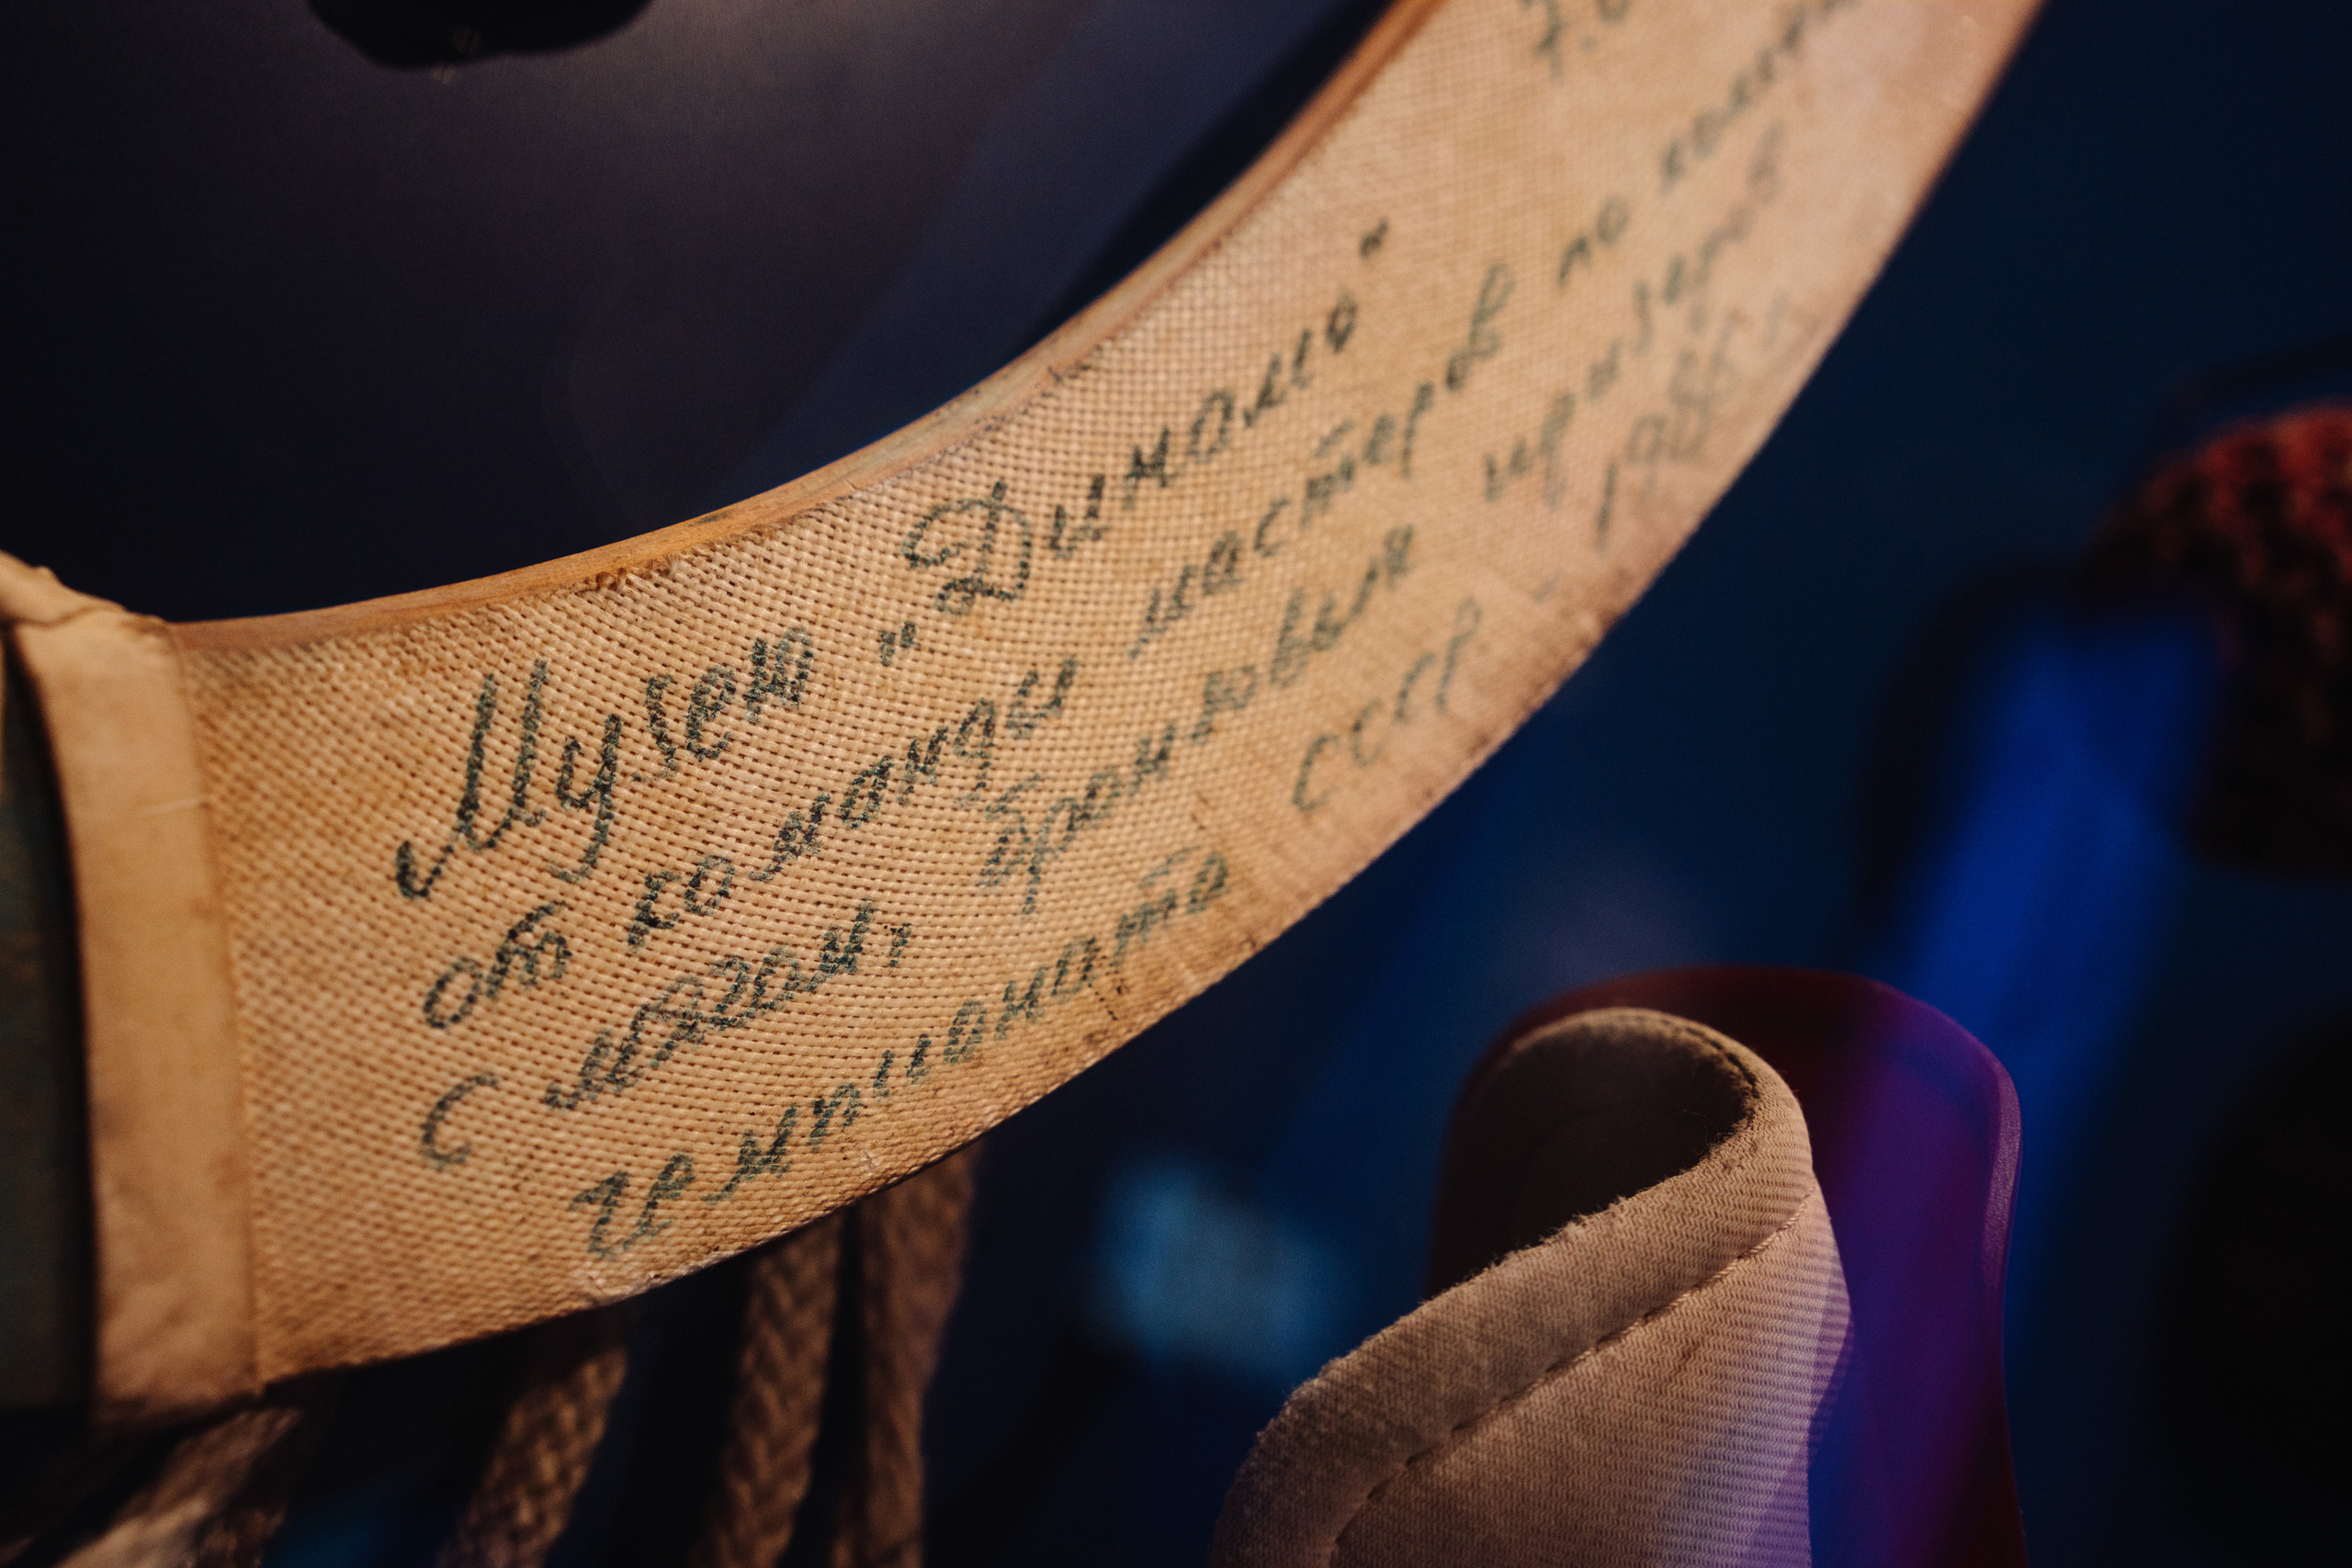 Музею „Динамо"
от команды мастеров по хоккею
с мячом, бронзовых призеров
чемпионата СССР 1986